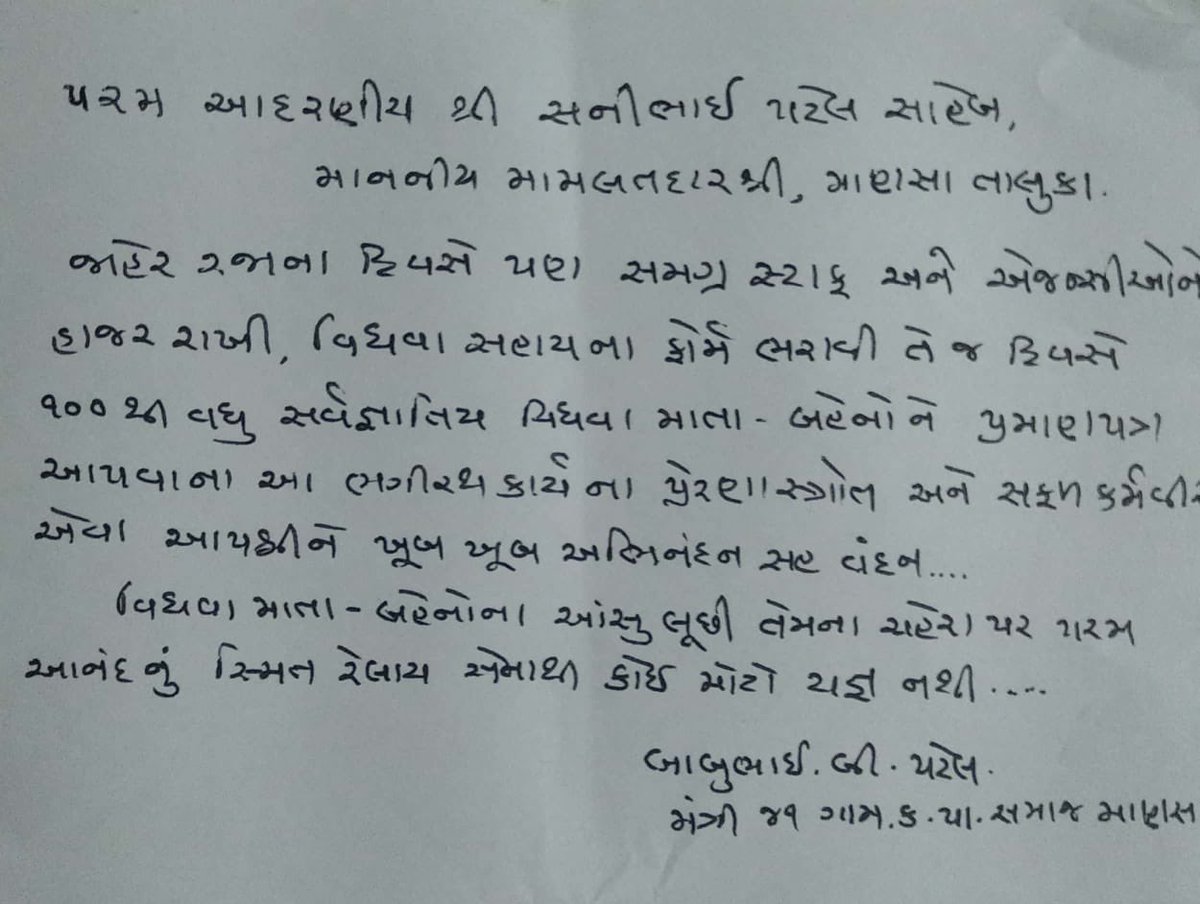 પરમ આદરણીય શ્રી સનીભાઈ પટેલ સાહેબ,
માનનીય મામલતદારશ્રી, માણસા તાલુકા.
જાહેર રજાના દિવસે પણ સમગ્ર સ્ટાફ અને એજન્સીઓને
હાજર રાખી, વિધવા સહાયના ફોર્મ ભરાવી તે જ દિવસે
૧૦૦થી વધુ સર્વજ્ઞાતિય વિધવા માતા - બહેનોને પ્રમાણપત્ર
આપવાના આ ભગીરથ કાર્યના પ્રેરણાસ્ત્રોત અને સફળ કર્મવીર
એવા આપશ્રીને ખૂબ ખૂબ અભિનંદન સહ વંદન....
વિધવા માતા - બહેનોના આંસુ લૂછી તેમના ચહેરા પર પરમ
આનંદનું સ્મિત રેલાય એનાથી કોઈ મોટો યજ્ઞ નથી.....
બાબુભાઈ. બી. પટેલ.
મંત્રી ૪૧ ગામ. ક. પા. સમાજ માણસ